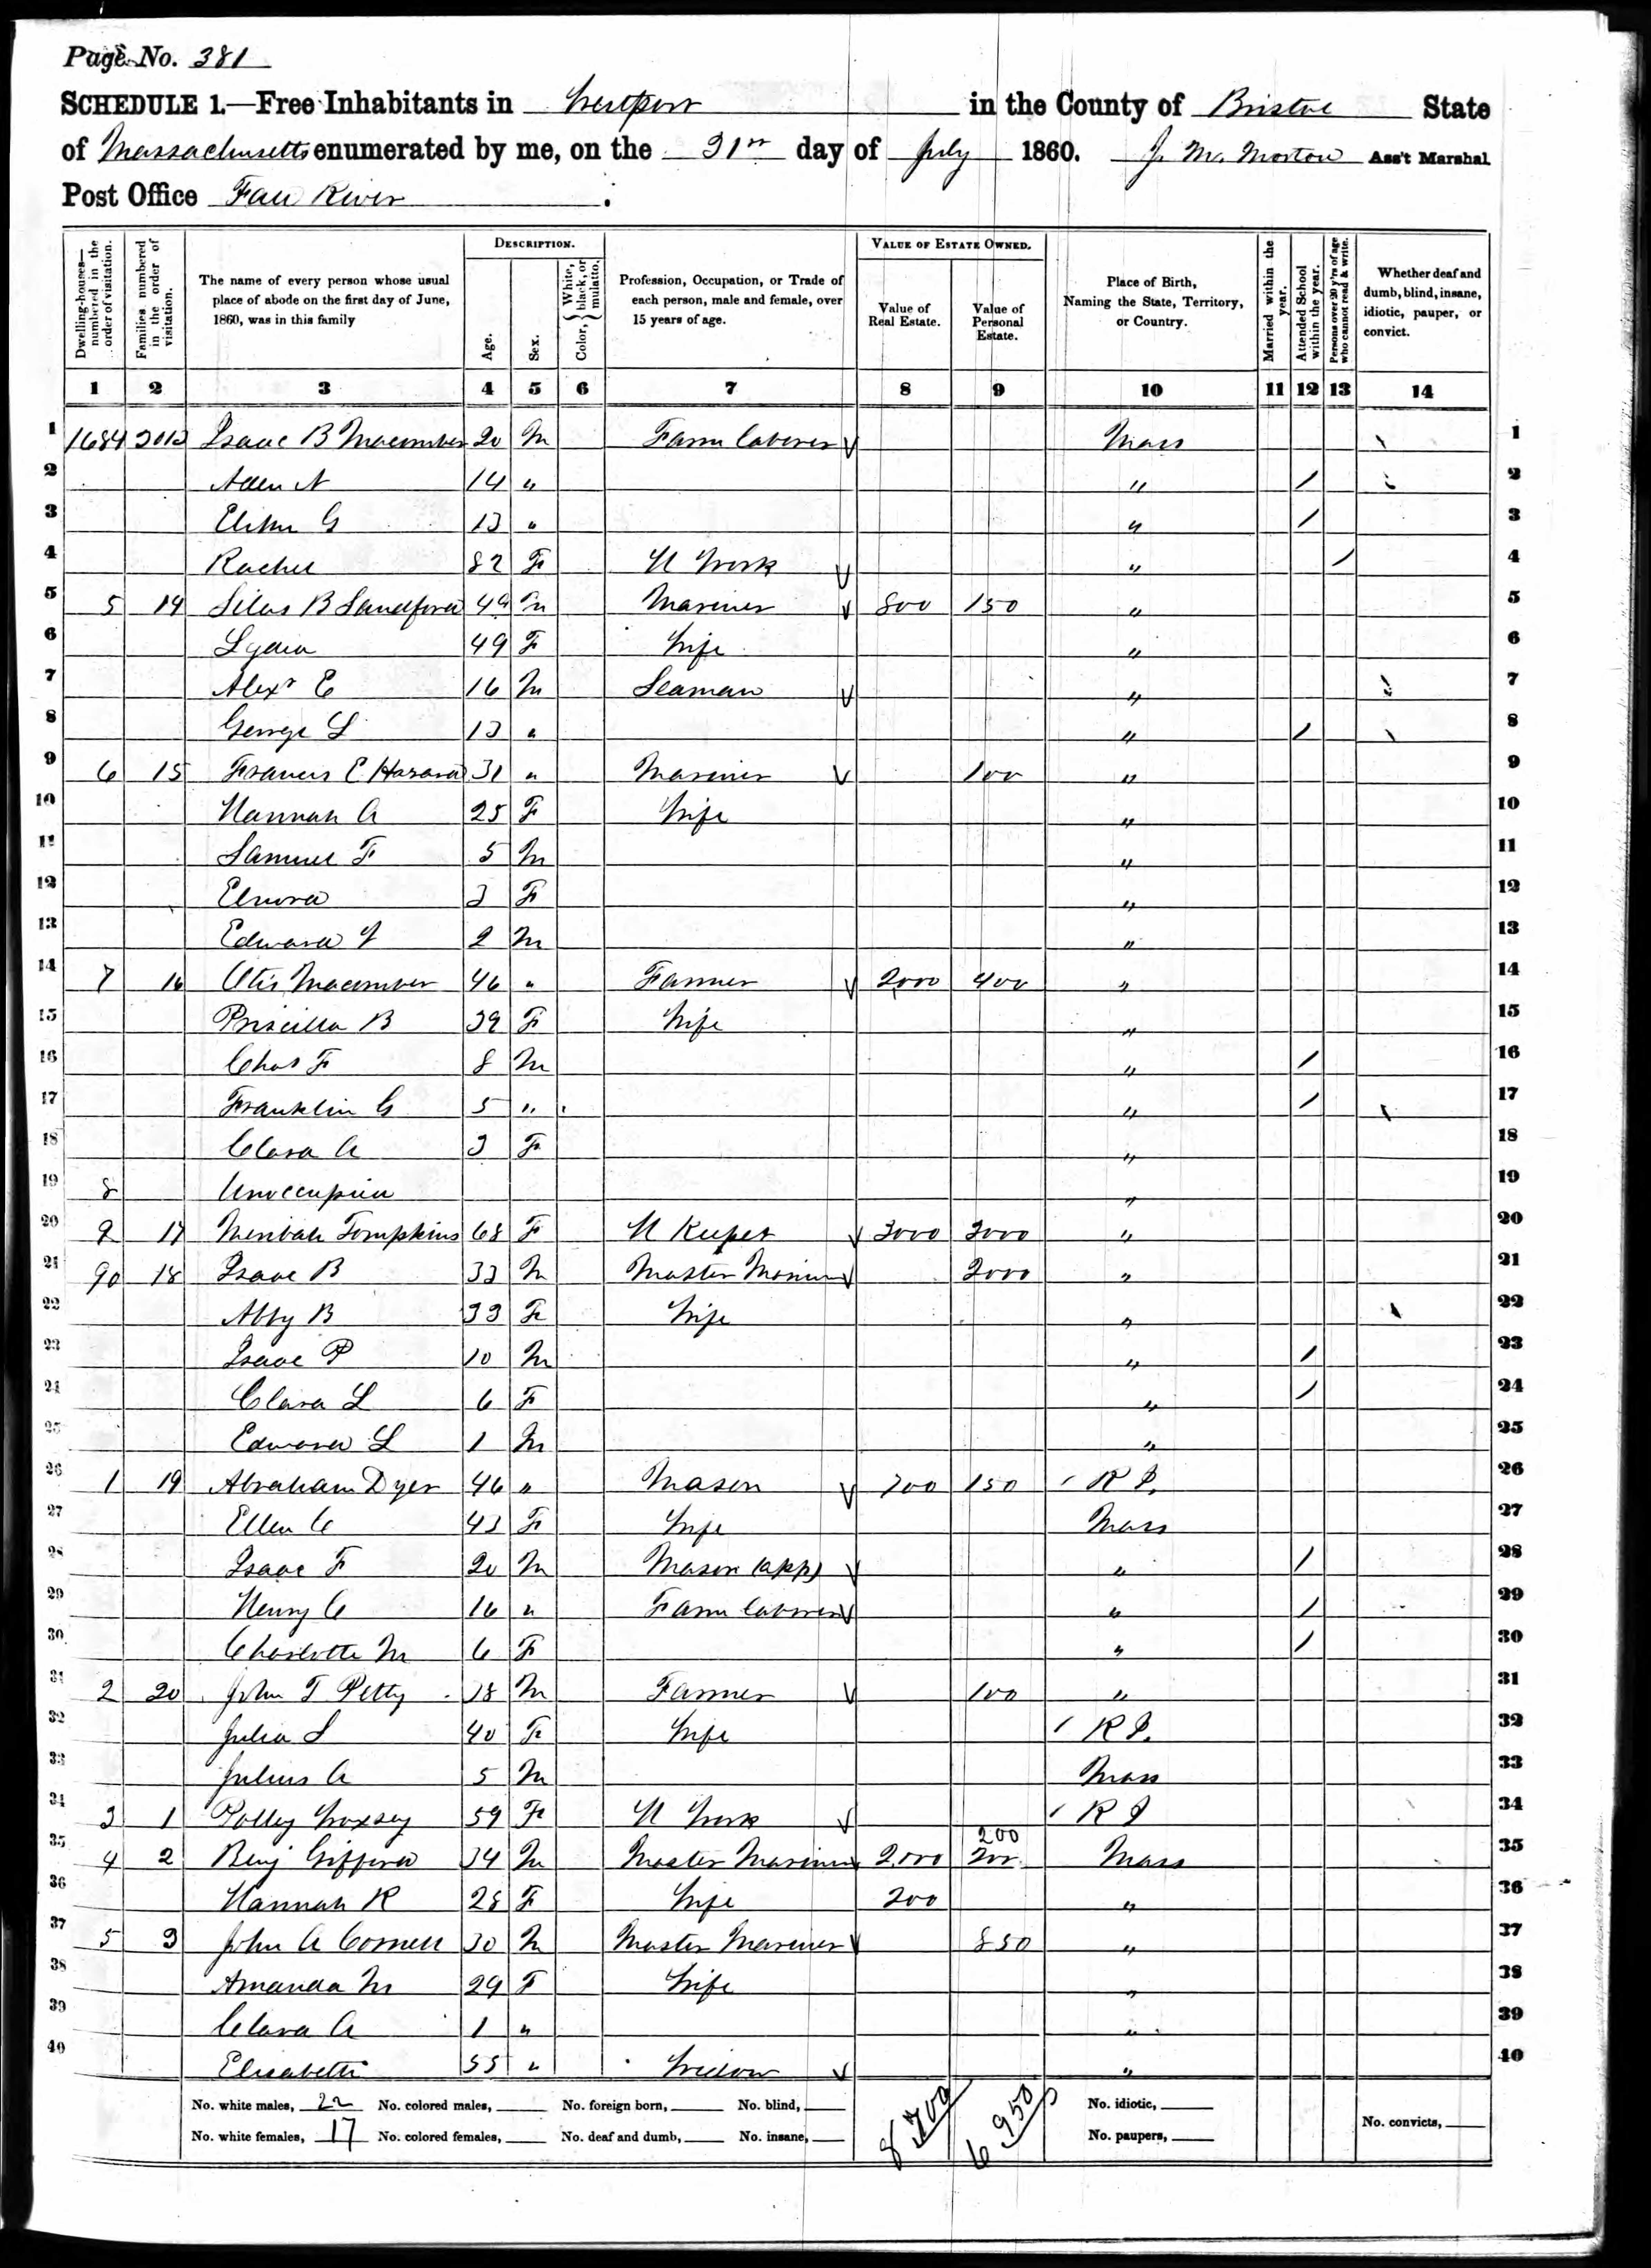 Page No. 381
SCHEDULE 1.—Free Inhabitants in Westport in the County of Bristol State
of Massachusetts enumerated by me, on the 31st day of July 1860. J. M. Morton Ass't Marshal
Post Office Fall River
Dwelling-houses—numbered in the order of visitation.
Families numbered in the order of visitation.
The name of every person whose usual place of abode on the first day of June, 1860, was in this family
DESCRIPTION.
Age.
Sex.
Color, { White, black, or mulatto.
Profession, Occupation, or Trade of each person, male and female, over 15 years of age.
VALUE OF ESTATE OWNED.
Value of Real Estate.
Value of Personal Estate.
Place of Birth, Naming the State, Territory, or Country.
Married within the year.
Attended School within the year.
Persons over 20 y'rs of age who cannot read & write.
Whether deaf and dumb, blind, insane, idiotic, pauper, or convict.
1 2 3 4 5 6 7 8 9 10 11 12 13 14
1 1684 2013 Isaac B Macomber 20 M Farm laborer Mass 1
2 Allen N 14 " " / 2
3 Elihu G 13 " " / 3
4 Rachel 82 F H Work " / 4
5 5 14 Silas B Sandford 49 M Mariner 800 150 " 5
6 Lydia 49 F Wife " 6
7 Alexr E 16 M Seaman " 7
8 George L 13 " " / 8
9 6 15 Francis E Hazard 31 " Mariner 100 " 9
10 Hannah A 25 F Wife " 10
11 Samuel F 5 M " 11
12 Elnora 3 F " 12
13 Edward 2 M " 13
14 7 16 Otis Macomber 46 " Farmer 2000 400 " 14
15 Priscilla B 39 F Wife " 15
16 Chas F 8 M " / 16
17 Franklin G 5 " " / 17
18 Clara A 3 F " 18
19 8 Unoccupied " 19
20 9 17 Meribah Tompkins 68 F H Keeper 3000 3000 " 20
21 90 18 Isaac B 33 M Master Mariner 2000 " 21
22 Abby B 33 F Wife " 22
23 Isaac P 10 M " / 23
24 Clara L 6 F " / 24
25 Edward L 1 M " 25
26 1 19 Abraham Dyer 46 " Mason 700 150 R I. 26
27 Ellen C 43 F Wife Mass 27
28 Isaac F 20 M Mason (app) " / 28
29 Henry C 16 " Farm laborer " / 29
30 Charlotte M 6 F " / 30
31 2 20 John T Petty 18 M Farmer 100 " 31
32 Julia S 40 F Wife R I. 32
33 Julius A 5 M Mass 33
34 3 1 Polley 59 F H Work R I 34
200
35 4 2 Benj Gifford 34 M Master Mariner 2,000 200 Mass 35
36 Hannah R 28 F Wife 200 " 36
37 5 3 John A Cornell 30 M Master Mariner 850 " 37
38 Amanda M 29 F Wife " 38
39 Clara A 1 " " 39
40 Elisabeth 55 " Widow " 40
No. white males, 22 No. colored males, No. foreign born, No. blind, 8700 6950 No. idiotic,
No. white females, 17 No. colored females, No. deaf and dumb, No. insane, No. paupers, No. convicts,